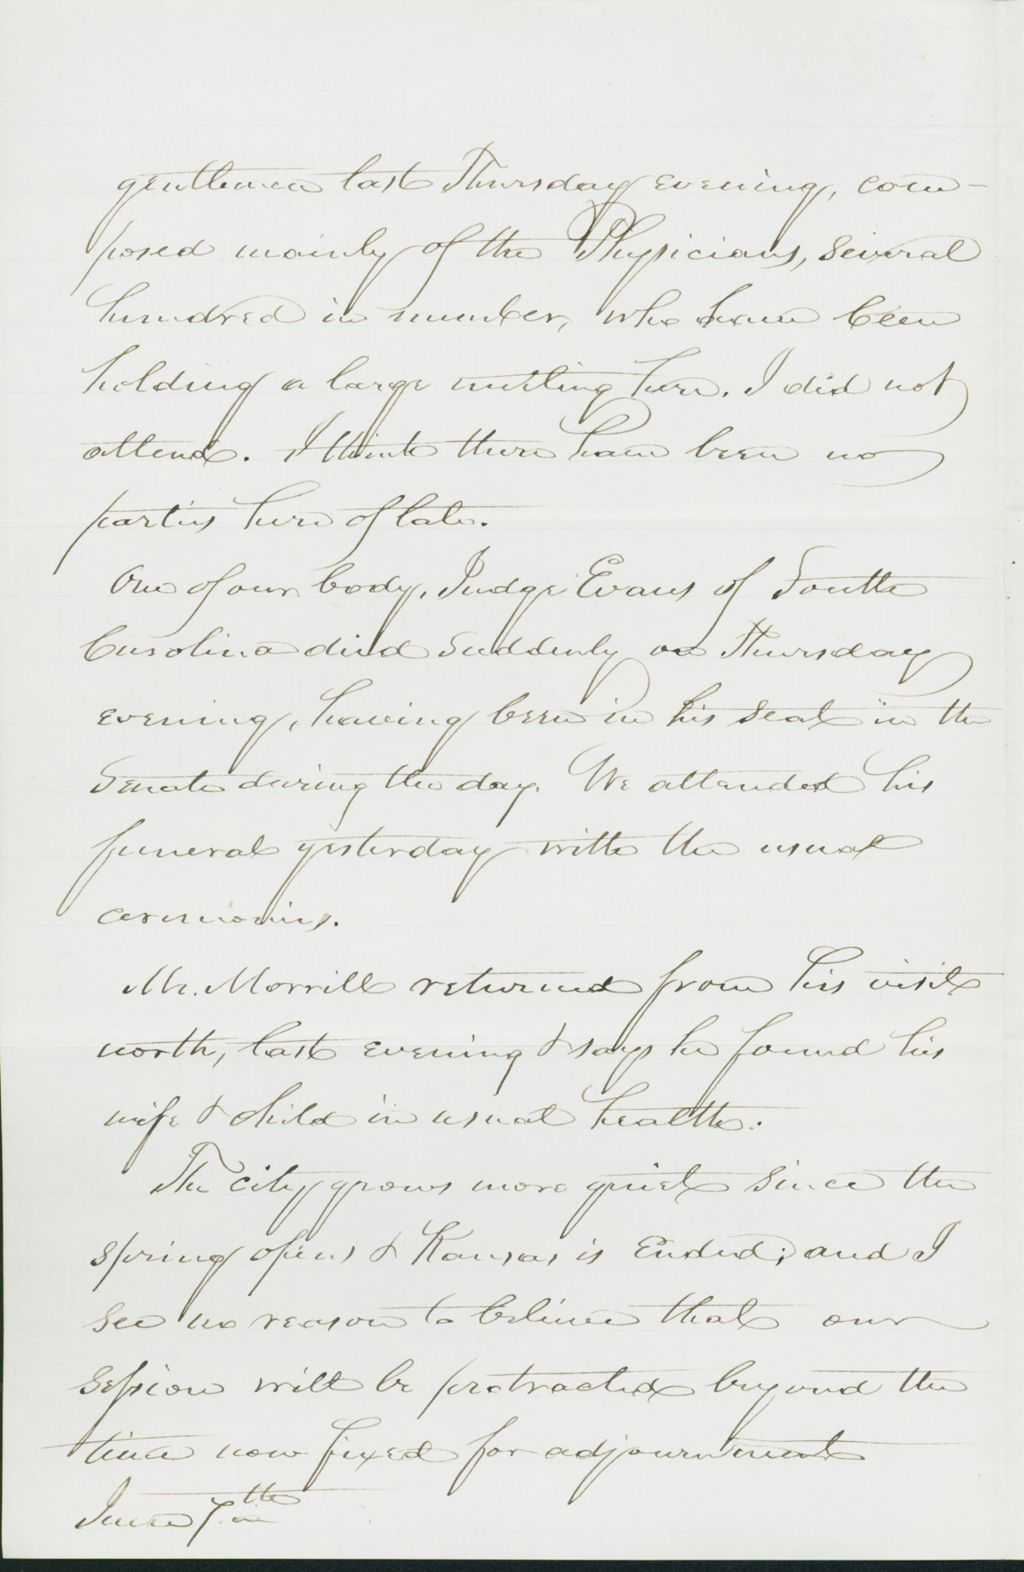 gentlemen last Thursday evening, com-
posed mainly of the Physicians, several
hundred in number, who have been
holding a large meeting here. I did not
attend. I think there have been no
parties here of late.
One of our body, Judge Evans of South
Carolina died suddenly on Thursday
evening, having been in his seat in the
Senate during the day. We attended his
funeral yesterday with the usual
ceremonies.
Mr. Morrill returned from his visit
north, last evening & says he found his
wife & child in usual health.
The city grows more quiet since the
spring opens & Kansas is Ended; and I
see no reason to believe that our
session will be protracted beyond the
time now fixed for adjournment
June 7th